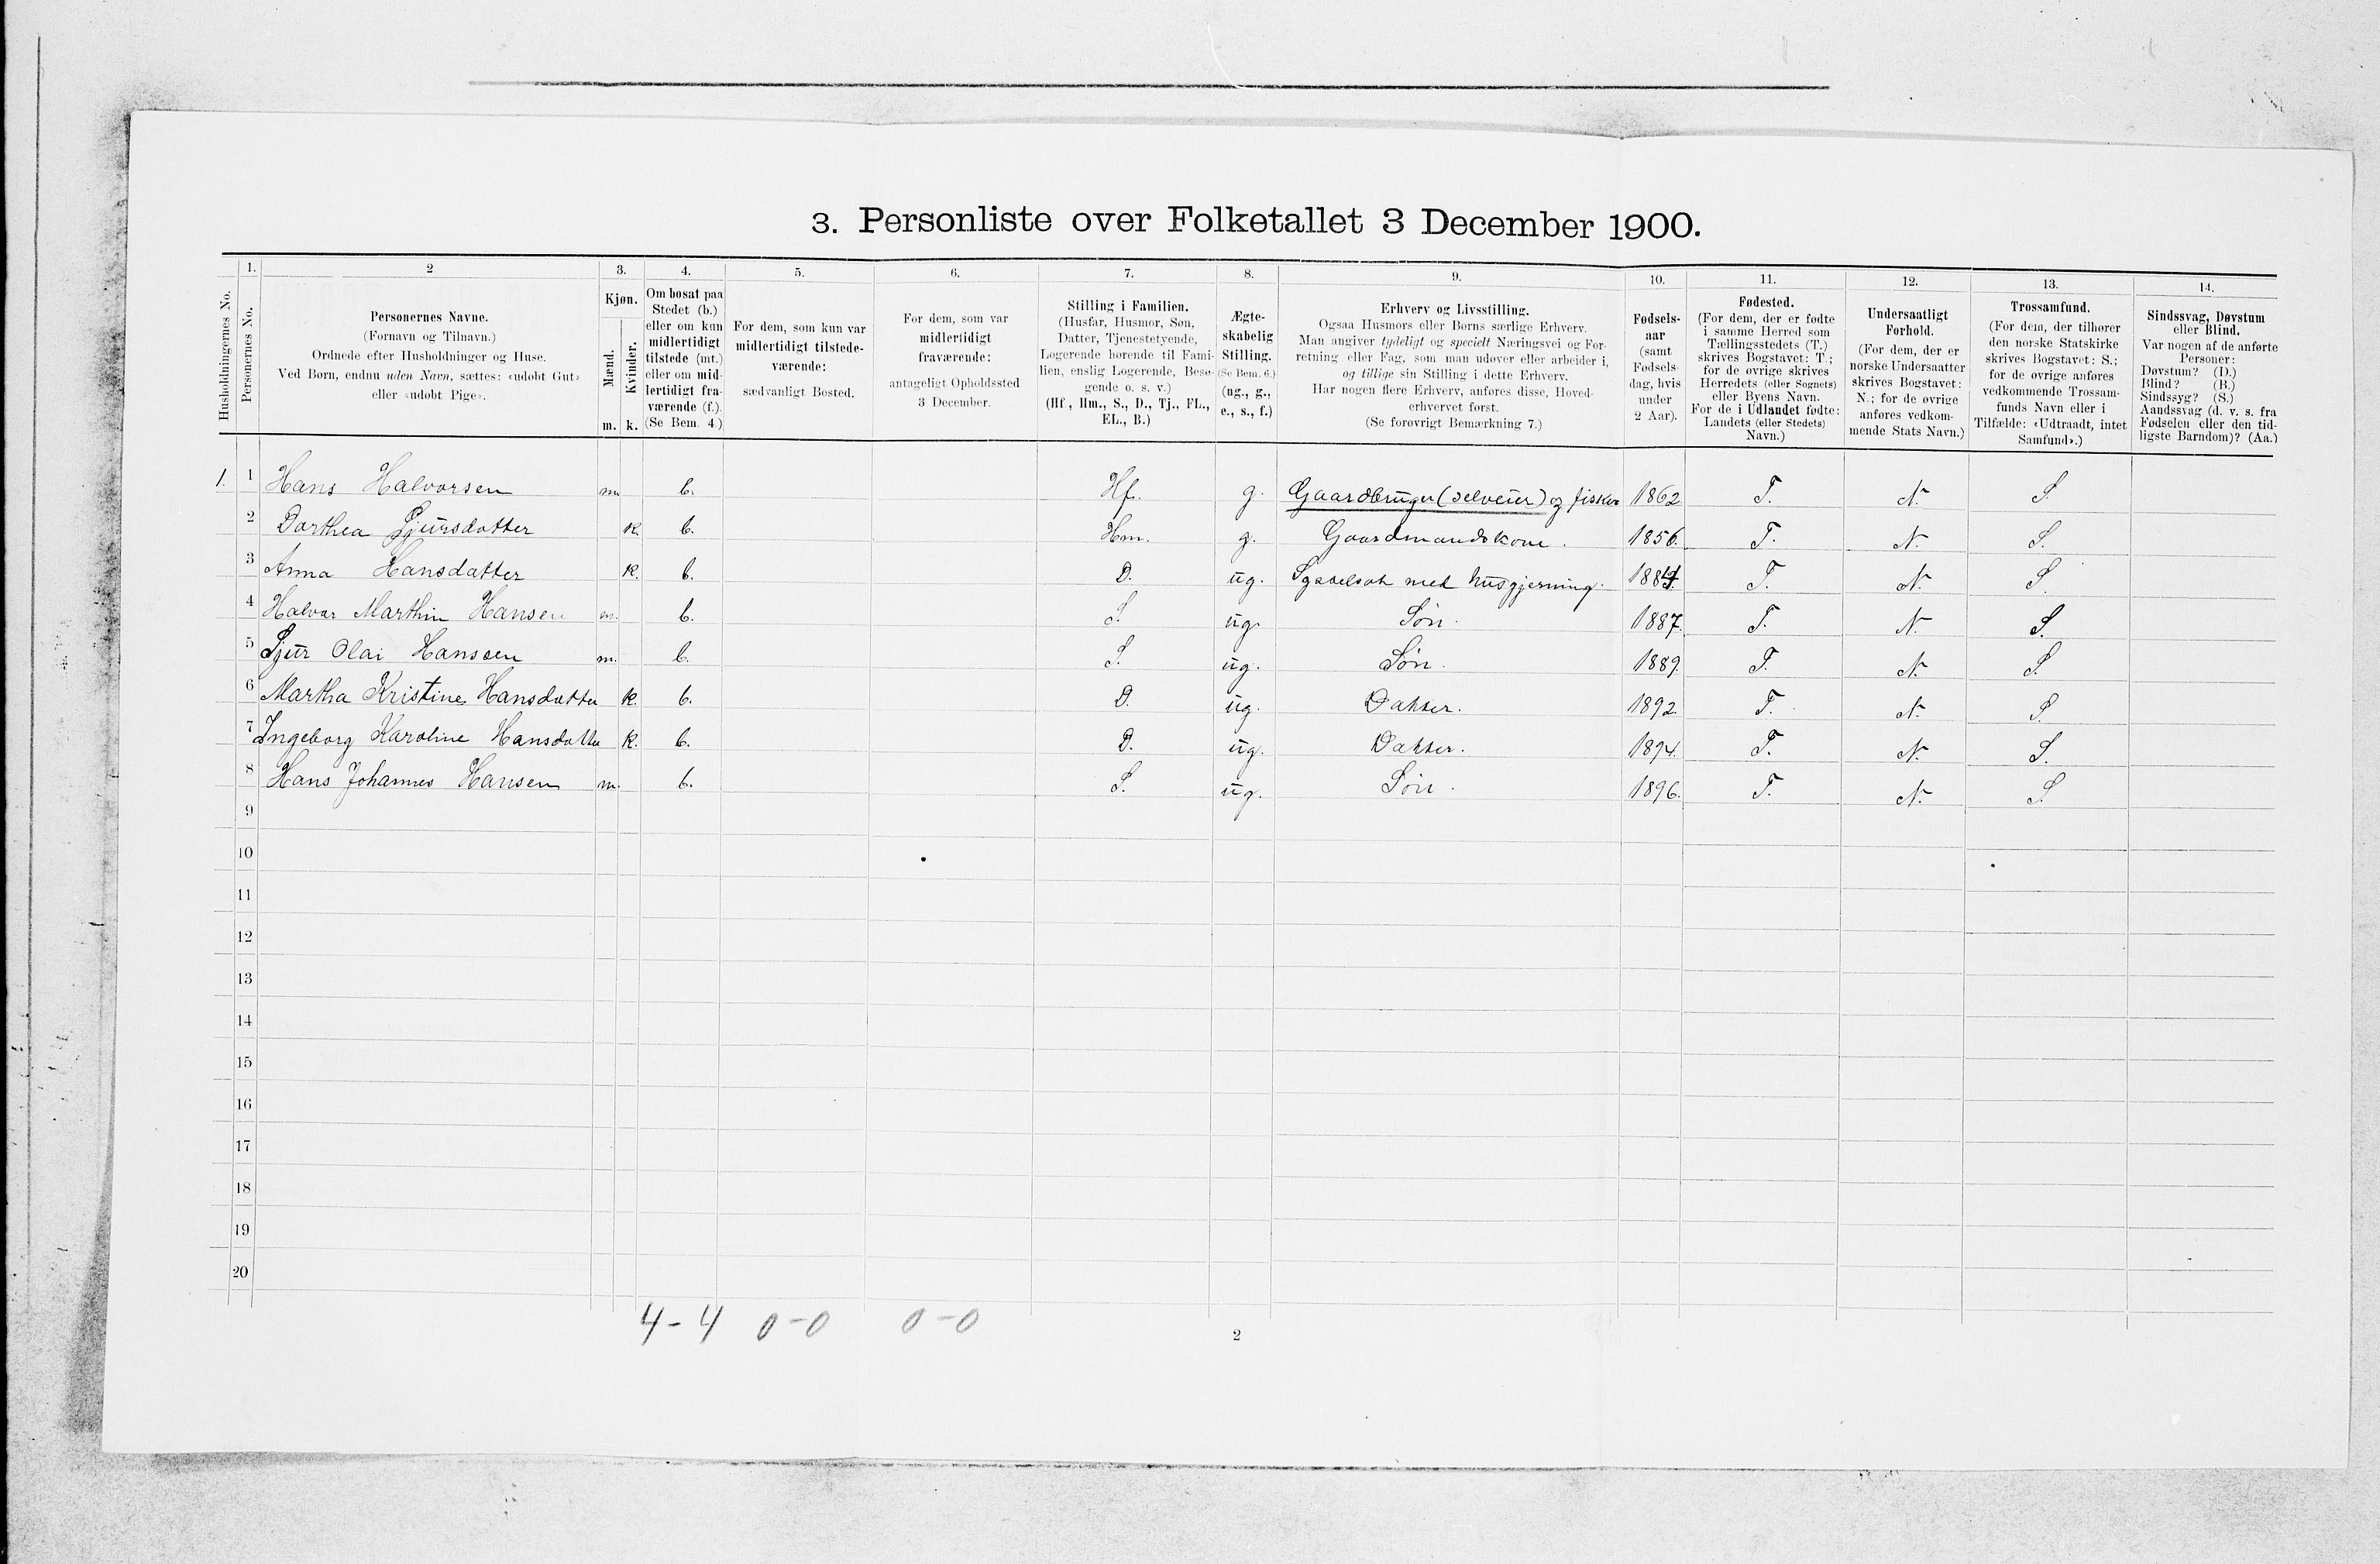 3. Personliste over Folketallet 3 December 1900.
Husholdningernes No.
1. Personernes No.
2. Personernes Navne.
(Fornavn og Tilnavn.)
Ordnede efter Husholdninger og Huse.
Ved Børn, endnu uden Navn, sættes: «udøbt Gut»
eller «udøbt Pige».
3. Kjøn.
Mænd. m.
Kvinder. k.
4. Om bosat paa
Stedet (b.)
eller om kun
midlertidigt
tilstede (mt.)
eller om mid-
lertidigt fra-
værende (f.).
(Se Bem. 4.)
5. For dem, som kun var
midlertidigt tilstede-
værende:
sædvanligt Bosted.
6. For dem, som var
midlertidigt
fraværende:
antageligt Opholdssted
3 December.
7. Stilling i Familien.
(Husfar, Husmor, Søn,
Datter, Tjenestetyende,
Logerende hørende til Fami-
lien, enslig Logerende, Besø-
gende o. s. v.)
(Hf., Hm., S., D., Tj., FL.,
EL., B.)
8. Ægte-
skabelig
Stilling.
(Se Bem. 6.)
(ug., g.,
e., s., f.)
9. Erhverv og Livsstilling.
Ogsaa Husmors eller Børns særlige Erhverv.
Man angiver tydeligt og specielt Næringsvei og For-
retning eller Fag, som man udøver eller arbeider i,
og tillige sin Stilling i dette Erhverv.
Har nogen flere Erhverv, anføres disse, Hoved-
erhvervet først.
(Se forøvrigt Bemærkning 7.)
10. Fødsels-
aar
(samt
Fødsels-
dag, hvis
under
2 Aar).
11. Fødested.
(For dem, der er fødte
i samme Herred som
Tællingsstedets (T.)
skrives Bogstavet: T.;
for de øvrige skrives
Herredets (eller Sognets)
eller Byens Navn.
For de i Udlandet fødte:
Landets (eller Stedets)
Navn.)
12. Undersaatligt
Forhold.
(For dem, der er
norske Undersaatter
skrives Bogstavet:
N.; for de øvrige
anføres vedkom-
mende Stats Navn.)
13. Trossamfund.
(For dem, der tilhører
den norske Statskirke
skrives Bogstavet: S.;
for de øvrige anføres
vedkommende Trossam-
funds Navn eller i
Tilfælde: «Udtraadt, intet
Samfund».)
14. Sindssvag, Døvstum
eller Blind.
Var nogen af de anførte
Personer:
Døvstum? (D.)
Blind? (B.)
Sindssyg? (S.)
Aandssvag (d. v. s. fra
Fødselen eller den tid-
ligste Barndom)? (Aa.)
1. 1 Hans Halvorsen m. b. Hf. g. Gaardbruger (selveier) og fisker 1862 T. N. S.
2 Dorthea Sjursdotter k. b. Hm. g. Gaardmandskone. 1856. T. N. S.
3 Anna Hansdatter k. b. D. ug. Sysselsat med husgjerning. 1884. T. N. S.
4 Halvor Marthin Hansen m. b. S. ug. Søn. 1887. T. N. S.
5 Sjur Olai Hanssen m. b. S. ug. Søn. 1889. T. N. S.
6 Martha Kristine Hansdotter k. b. D. ug. Datter. 1892 T. N. S.
7 Ingeborg Karoline Hansdotter k. b. D. ug. Datter. 1894. T. N. S.
8 Hans Johannes Hansen m. b. S. ug. Søn. 1896. T. N. S.
9
10
11
12
13
14
15
16
17
18
19
20
4-4 0-0 0-0
2